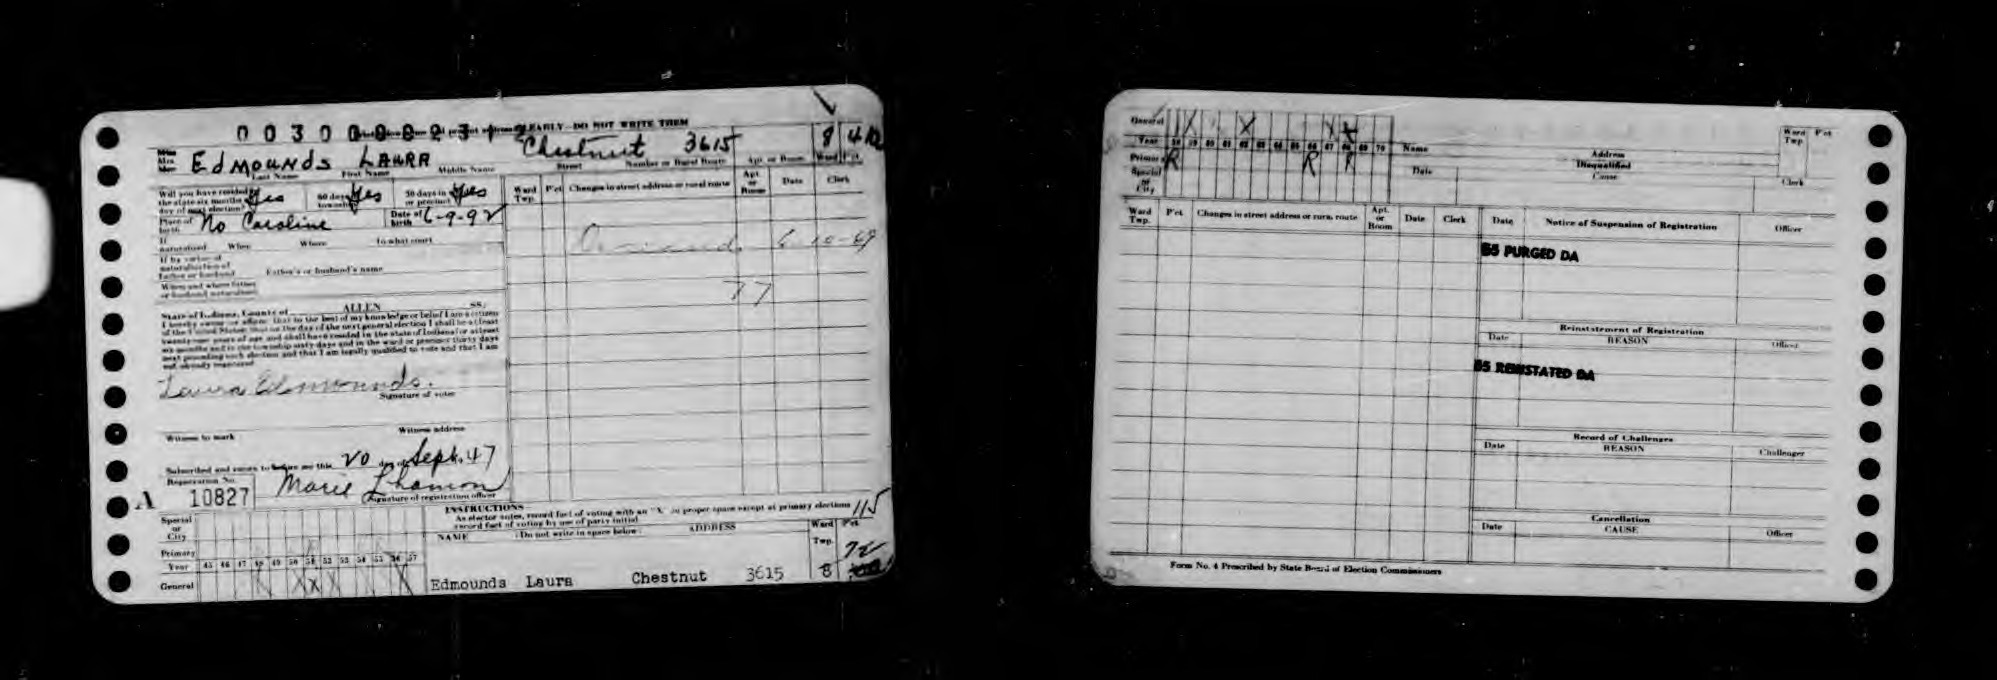 CLEARLY—DO NOT WRITE THEM
Miss
Mrs.
Mr.
EDMOUNDS LAURA Chestnut 3615 8
Last Name First Name Middle Name Street Number or Rural Route Apt. or Room Ward Pct.
Will you have resided in the state six months day of next election? Yes 60 days in township Yes 30 days in or precinct Yes
Place of birth No Caroline Date of birth 6-9-92
If naturalized When Where In what court
If by virtue of naturalization of father or husband Father's or husband's name
When and where father or husband naturalized
State of Indiana, County of ALLEN SS:
I hereby swear or affirm that to the best of my knowledge or belief I am a citizen
of the United States; that on the day of the next general election I shall be at least
twenty-one years of age and shall have resided in the state of Indiana for at least
six months and in the township sixty days and in the ward or precinct thirty days
next preceding such election and that I am legally qualified to vote and that I am
not already registered
Laura Edmounds.
Signature of voter
Witness to mark Witness address
Subscribed and sworn to before me this 20 day of Sept. 47
Registration No.
A 10827
Signature of registration officer
Ward Twp. P'ct Changes in street address or rural route Apt. or Room Date Clerk
6 10-69
77
INSTRUCTIONS
As elector votes, record fact of voting with an "X" in proper space except at primary elections 115
record fact of voting by use of party initial
NAME (Do not write in space below) ADDRESS Ward Twp. P'ct
Special or City
Primary
Year 45 46 47 48 49 50 51 52 53 54 55 56 57
General X X X X
72
Edmounds Laura Chestnut 3615 8
General X X X X
Year 58 59 60 61 62 63 64 65 66 67 68 69 70
Primary R R R
Special or City
Name Address Ward Twp. P'ct
Disqualified
Date Cause Clerk
Ward Twp. P'ct Changes in street address or rural route Apt. or Room Date Clerk
Date Notice of Suspension of Registration Officer
85 PURGED DA
Reinstatement of Registration
Date REASON Officer
85 REINSTATED DA
Record of Challenges
Date REASON Challenger
Cancellation
Date CAUSE Officer
Form No. 4 Prescribed by State Board of Election Commissioners